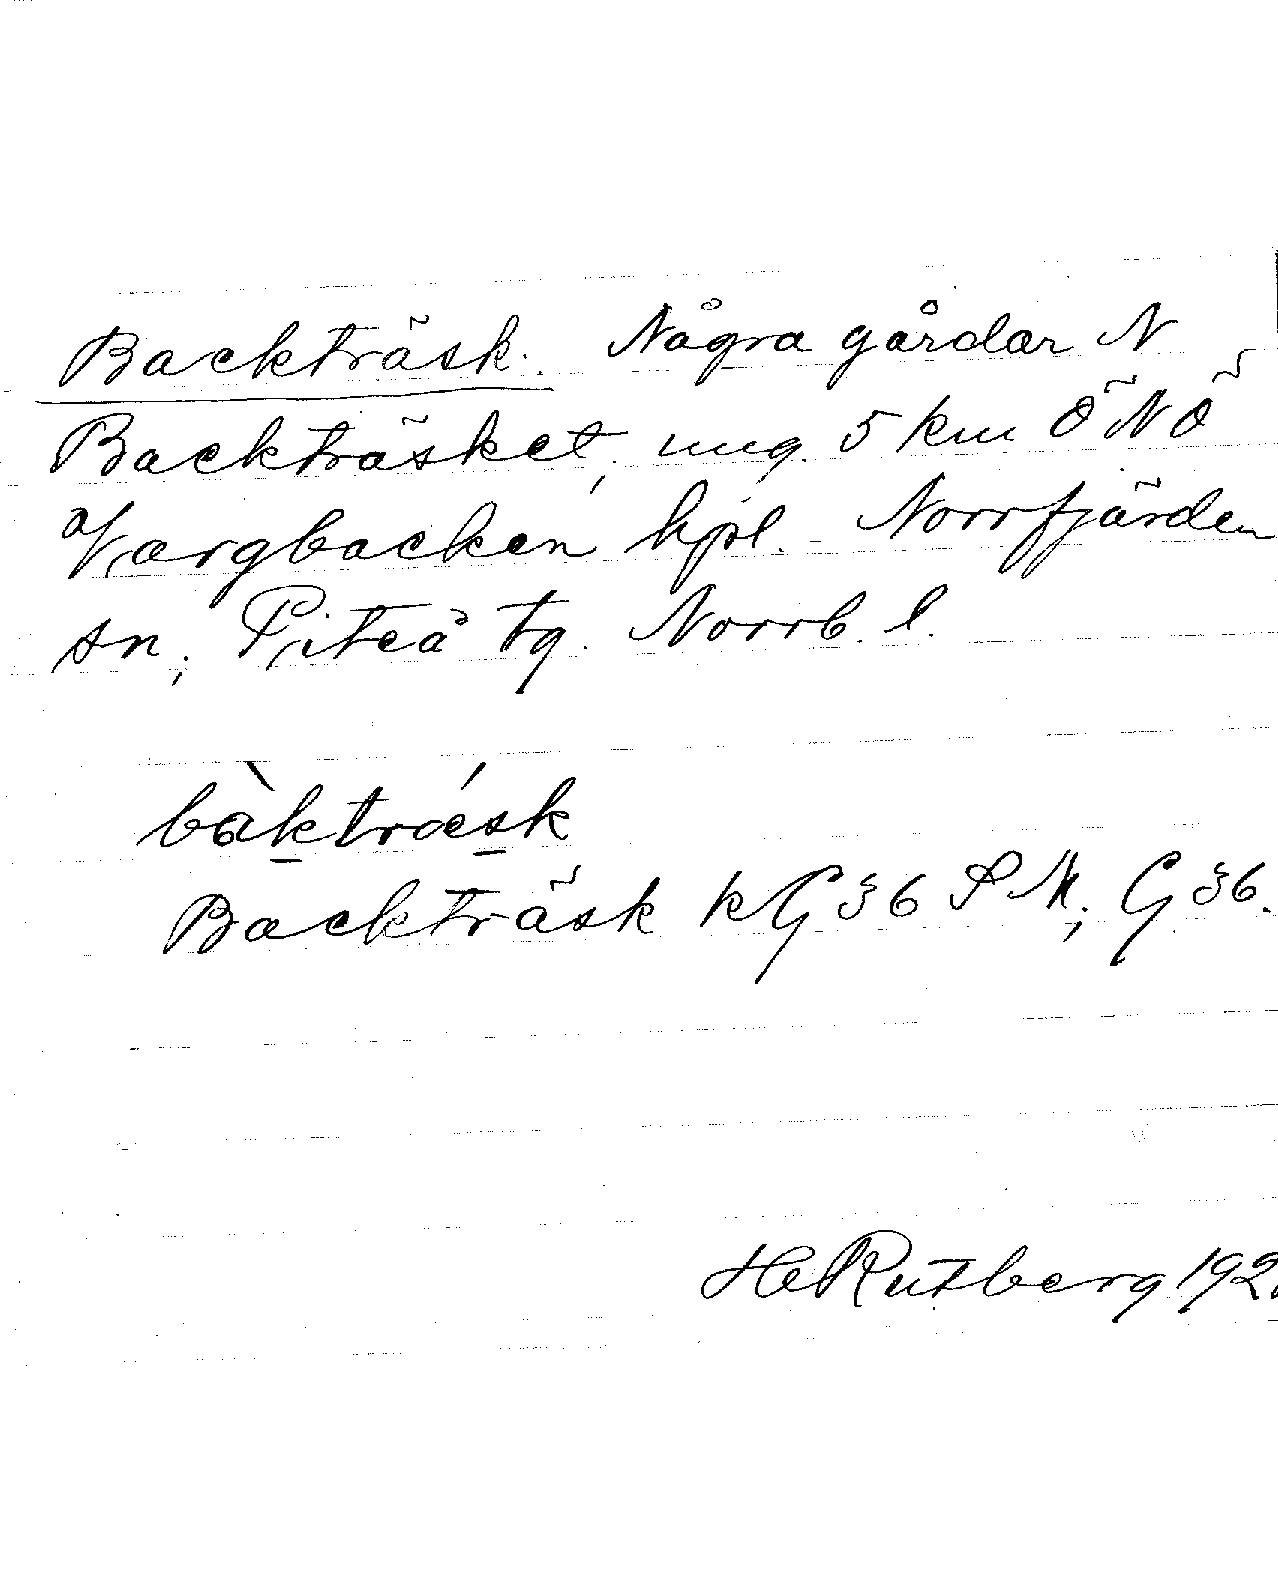 Backträsk. Några gårdar N
Backträsket, ung. 5 km ÖNÖ
a/Vargbacken hpl. Norrfjärden
sn, Piteå tg. Norrb. l.
bàktrǽsk
Backträsk kG 36 SM, G 36.
HRutberg 192